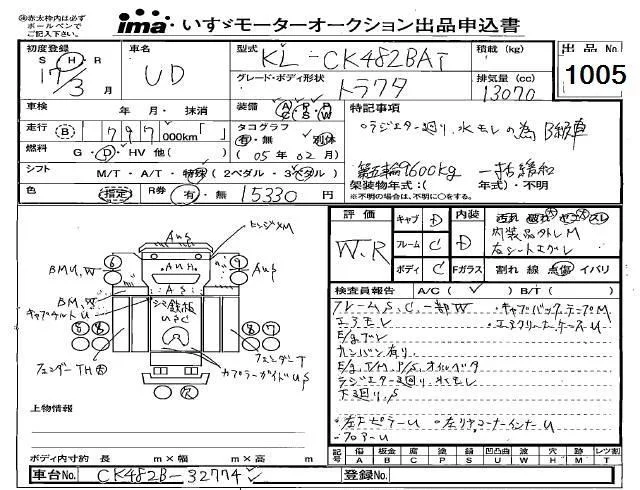 ㊟赤太枠内は必ず
ボールペンで
ご記入下さい。
ima いすゞモーターオークション出品申込書
初度登録 S H R
17/3 月
車名
UD
型式
KL-CK482BAT
グレード・ボディ形状
トラクタ
積載 (kg)
排気量 (cc)
13070
出品No.
1005
車検 年 月・抹消
装備 A P P C S W
走行 B 1 797 000km「 」
タコグラフ
有・無 別体
(05年02月)
燃料 G・D・HV 他( )
シフト M/T・A/T・特殊(2ペダル・3ペダル)
色 指定 R券 有・無 15330 円
特記事項
◦ラジエター廻り、水モレの為B級車
第五輪9600kg 一括緩和
架装物年式:( 年式)・不明
※不明の場合は、不明に○をする。
評価
W.R
キャブ D
フレーム C
ボディ C
内装 D
Fガラス
汚れ 破れ ヤニ スレ
内装品外レM
右シートエグレ
割れ 線 点傷 イバリ
検査員報告 A/C( ) B/T( )
フレームS、C、一部W
・キャブバックテープM
エアモレ
・エアクリーナーケースU
E/gブレ
カンバン有り
E/g、T/M、P/S、オイルベタ
ラジエター廻り、水モレ
下廻り、S
・左FピラーU
・左リヤコーナーインナーU
・フロアーU
ヒンジ×M
AUS
BMU,W
6
9
AUS
AUH
BM,W
AS
キャブチルトU
シミ鉄板
USC
8 8
8 7
フェンダーTH
フェンダーT
カプラーガイドUS
R
上物情報
ボディ内寸約 長 m×幅 m×高 m
記号 傷 A 板金 B 腐 C 塗 P 錆 S 凹凸曲 U 波 W 穴 H 跡 M レンズ割 T
車台No. CK482B-32774
登録No.